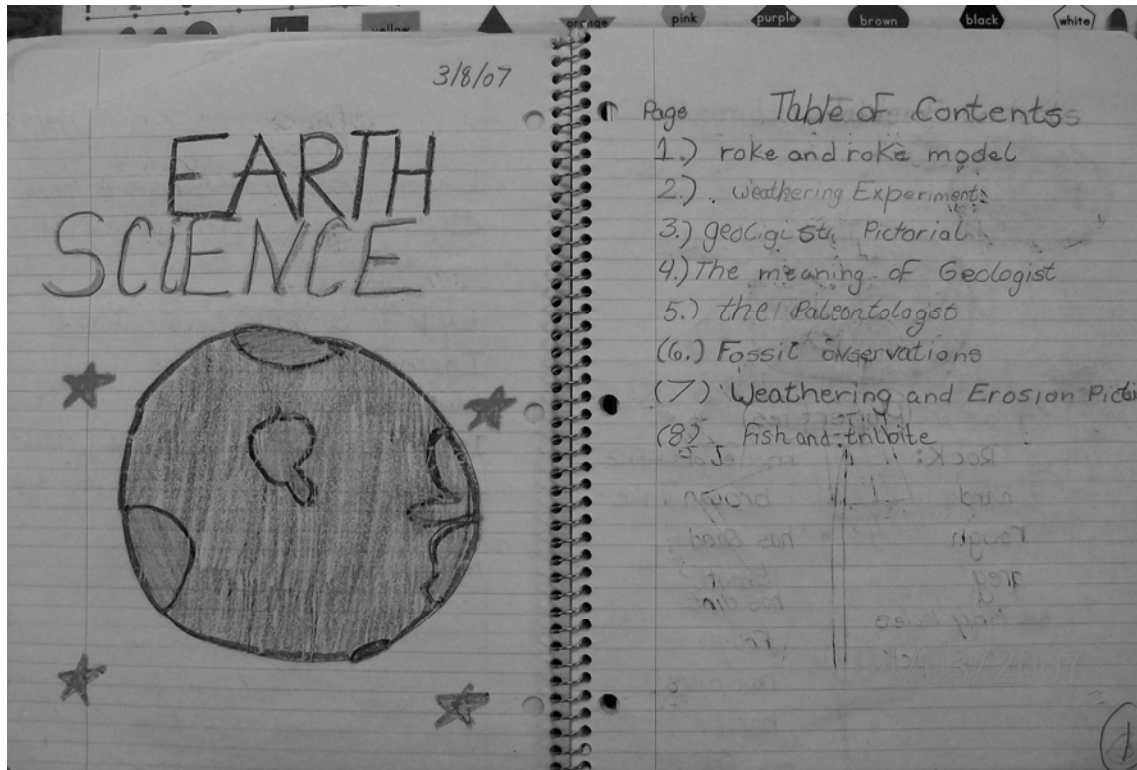 yellow
orange
pink
purple
brown
black
white
3/8/07
EARTH
SCIENCE
Page Table of Contentss
1.) roke and roke model
2.) . Weathering Experiments
3.) geoligist Pictorial
4.) The meaning of Geologist
5.) the Paleontologist
(6.) Fossil onservations
(7) Weathering and Erosion
(8) Fish and trilbite
1